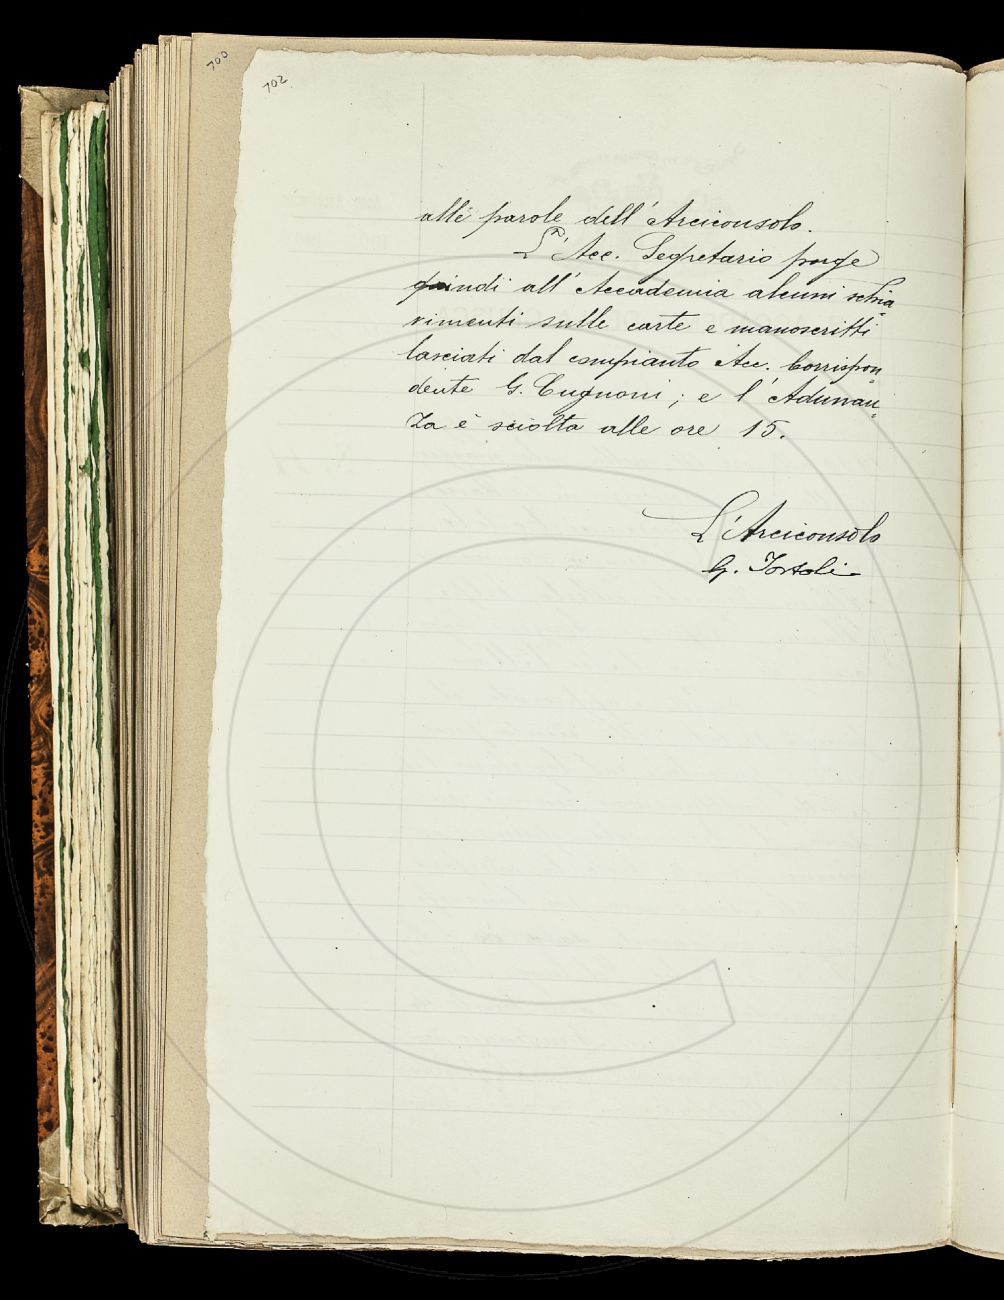 700
702
alle parole dell'Arciconsolo.
L'Acc. Segretario porge
quindi all'Accademia alcuni schia„
rimenti sulle carte e manoscritti
lasciati dal compianto Acc. Corrispon„
dente G. Cugnoni; e l'Adunan„
za è sciolta alle ore 15.
L'Arciconsolo
G. Tortoli